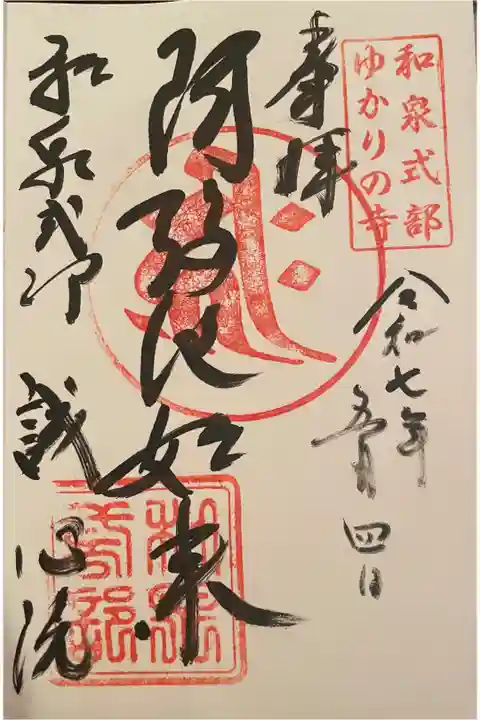 和泉式部
ゆかりの寺
奉拝
令和七年
五月四日
阿弥陀如来
和泉式部
誠心院
和泉
式部